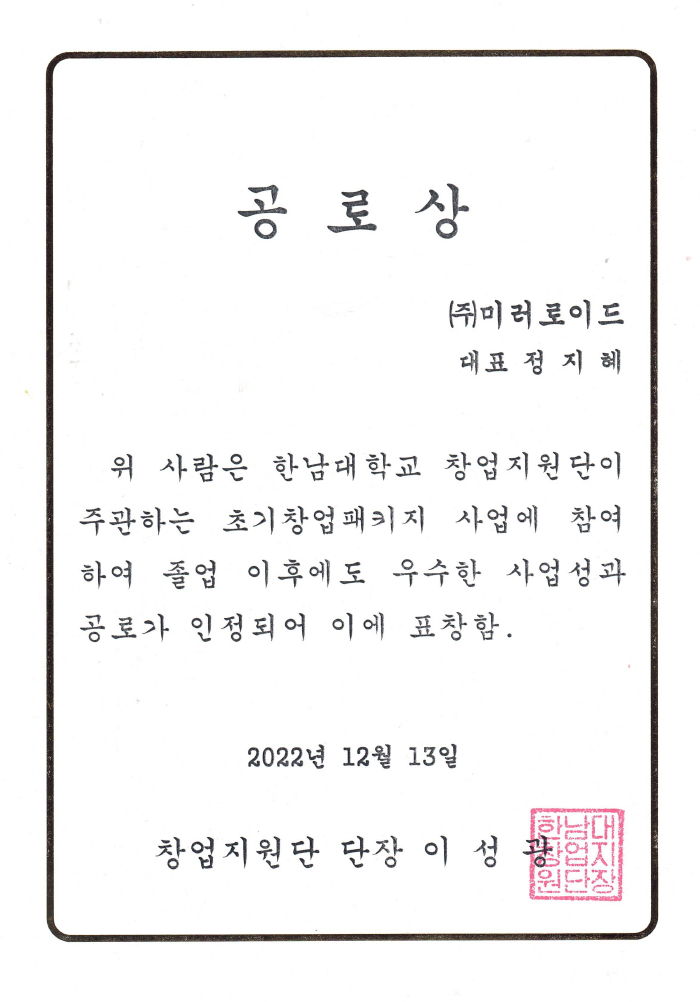 공 로 상
㈜미러로이드
대표 정 지 혜
위 사람은 한남대학교 창업지원단이
주관하는 초기창업패키지 사업에 참여
하여 졸업 이후에도 우수한 사업성과
공로가 인정되어 이에 표창함.
2022년 12월 13일
창업지원단 단장 이 성 광
한남대
창업지
원단장